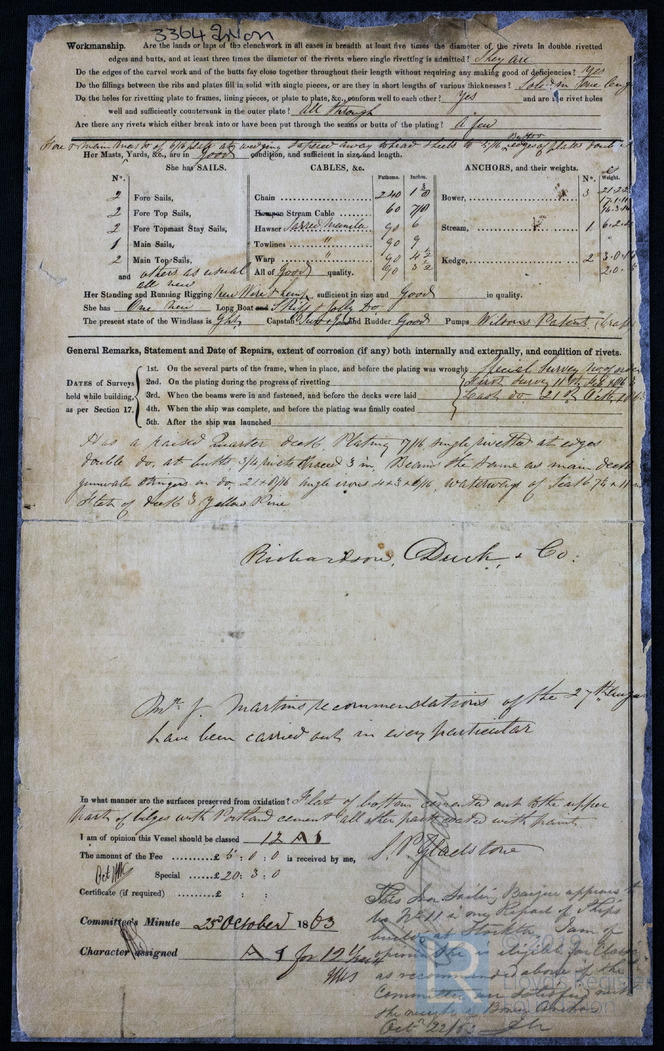 3364 Iron
Workmanship. Are the lands or laps of the clenchwork in all cases in breadth at least five times the diameter of the rivets in double rivetted
edges and butts, and at least three times the diameter of the rivets where single rivetting is admitted? They are
Do the edges of the carvel work and of the butts fay close together throughout their length without requiring any making good of deficiencies? Yes
Do the fillings between the ribs and plates fill in solid with single pieces, or are they in short lengths of various thicknesses? Solid in one
Do the holes for rivetting plate to frames, lining pieces, or plate to plate, &c., conform well to each other? Yes and are the rivet holes
well and sufficiently countersunk in the outer plate? all through
Are there any rivets which either break into or have been put through the seams or butts of the plating? a few
Her Masts, Yards, &c., are in good condition, and sufficient in size and length.
She has SAILS. CABLES, &c. ANCHORS, and their weights.
N°. Fathoms. Inches. N°. Weight.
2 Fore Sails, Chain 240 Bower, 3
2 Fore Top Sails, Hempen Stream Cable 60 7/8
2 Fore Topmast Stay Sails, Hawser Tarred Manila 90 6 Stream, 1
1 Main Sails, Towlines " 90
2 Main Top Sails, Warp " 90 Kedge, 2
and others as usual All of Good quality. 90
all new
Her Standing and Running Rigging New Wire & hemp sufficient in size and Good in quality.
She has One new Long Boat and Skiff & Jolly Do
The present state of the Windlass is Good Capstan and Rudder Good Pumps Wilsons Patent
General Remarks, Statement and Date of Repairs, extent of corrosion (if any) both internally and externally, and condition of rivets.
DATES of Surveys held while building, as per Section 17.
1st. On the several parts of the frame, when in place, and before the plating was wrought Special Survey
2nd. On the plating during the progress of rivetting First Survey 11th
3rd. When the beams were in and fastened, and before the decks were laid Last do. 21st Octr 1863
4th. When the ship was complete, and before the plating was finally coated
5th. After the ship was launched
Has a raised Quarter deck Plating 7/16 single rivetted at edges
double do. at butts, 3/4 rivets spaced 3 in, Beams the same as main deck
gunwale stringers on do. angle irons waterways of Teak
Flat of deck 3 Yellow Pine
Richardson, Duck, & Co.
Mr J. Martins recommendations of the 27th
have been carried out in every particular
In what manner are the surfaces preserved from oxidation? Flat of bottom cemented out to the upper
parts of bilges with Portland cement all other parts coated with paint
I am of opinion this Vessel should be classed 12 A 1
The amount of the Fee £ 5 : 0 : 0 is received by me, S. P. Gladstone
Special £ 20 : 3 : 0
Certificate (if required) £ : :
Committee's Minute 23rd October 1863
Character assigned A 1 for 12 Years
This Iron Sailing Barque appears to
be No 11 in my Report of Ships
building at Stockton, I am of
opinion she is eligible for Class
as recommended above if the
Committee are satisfied with
the weight of Bower Anchors
Octr 22/63
Lloyd's Register
Foundation